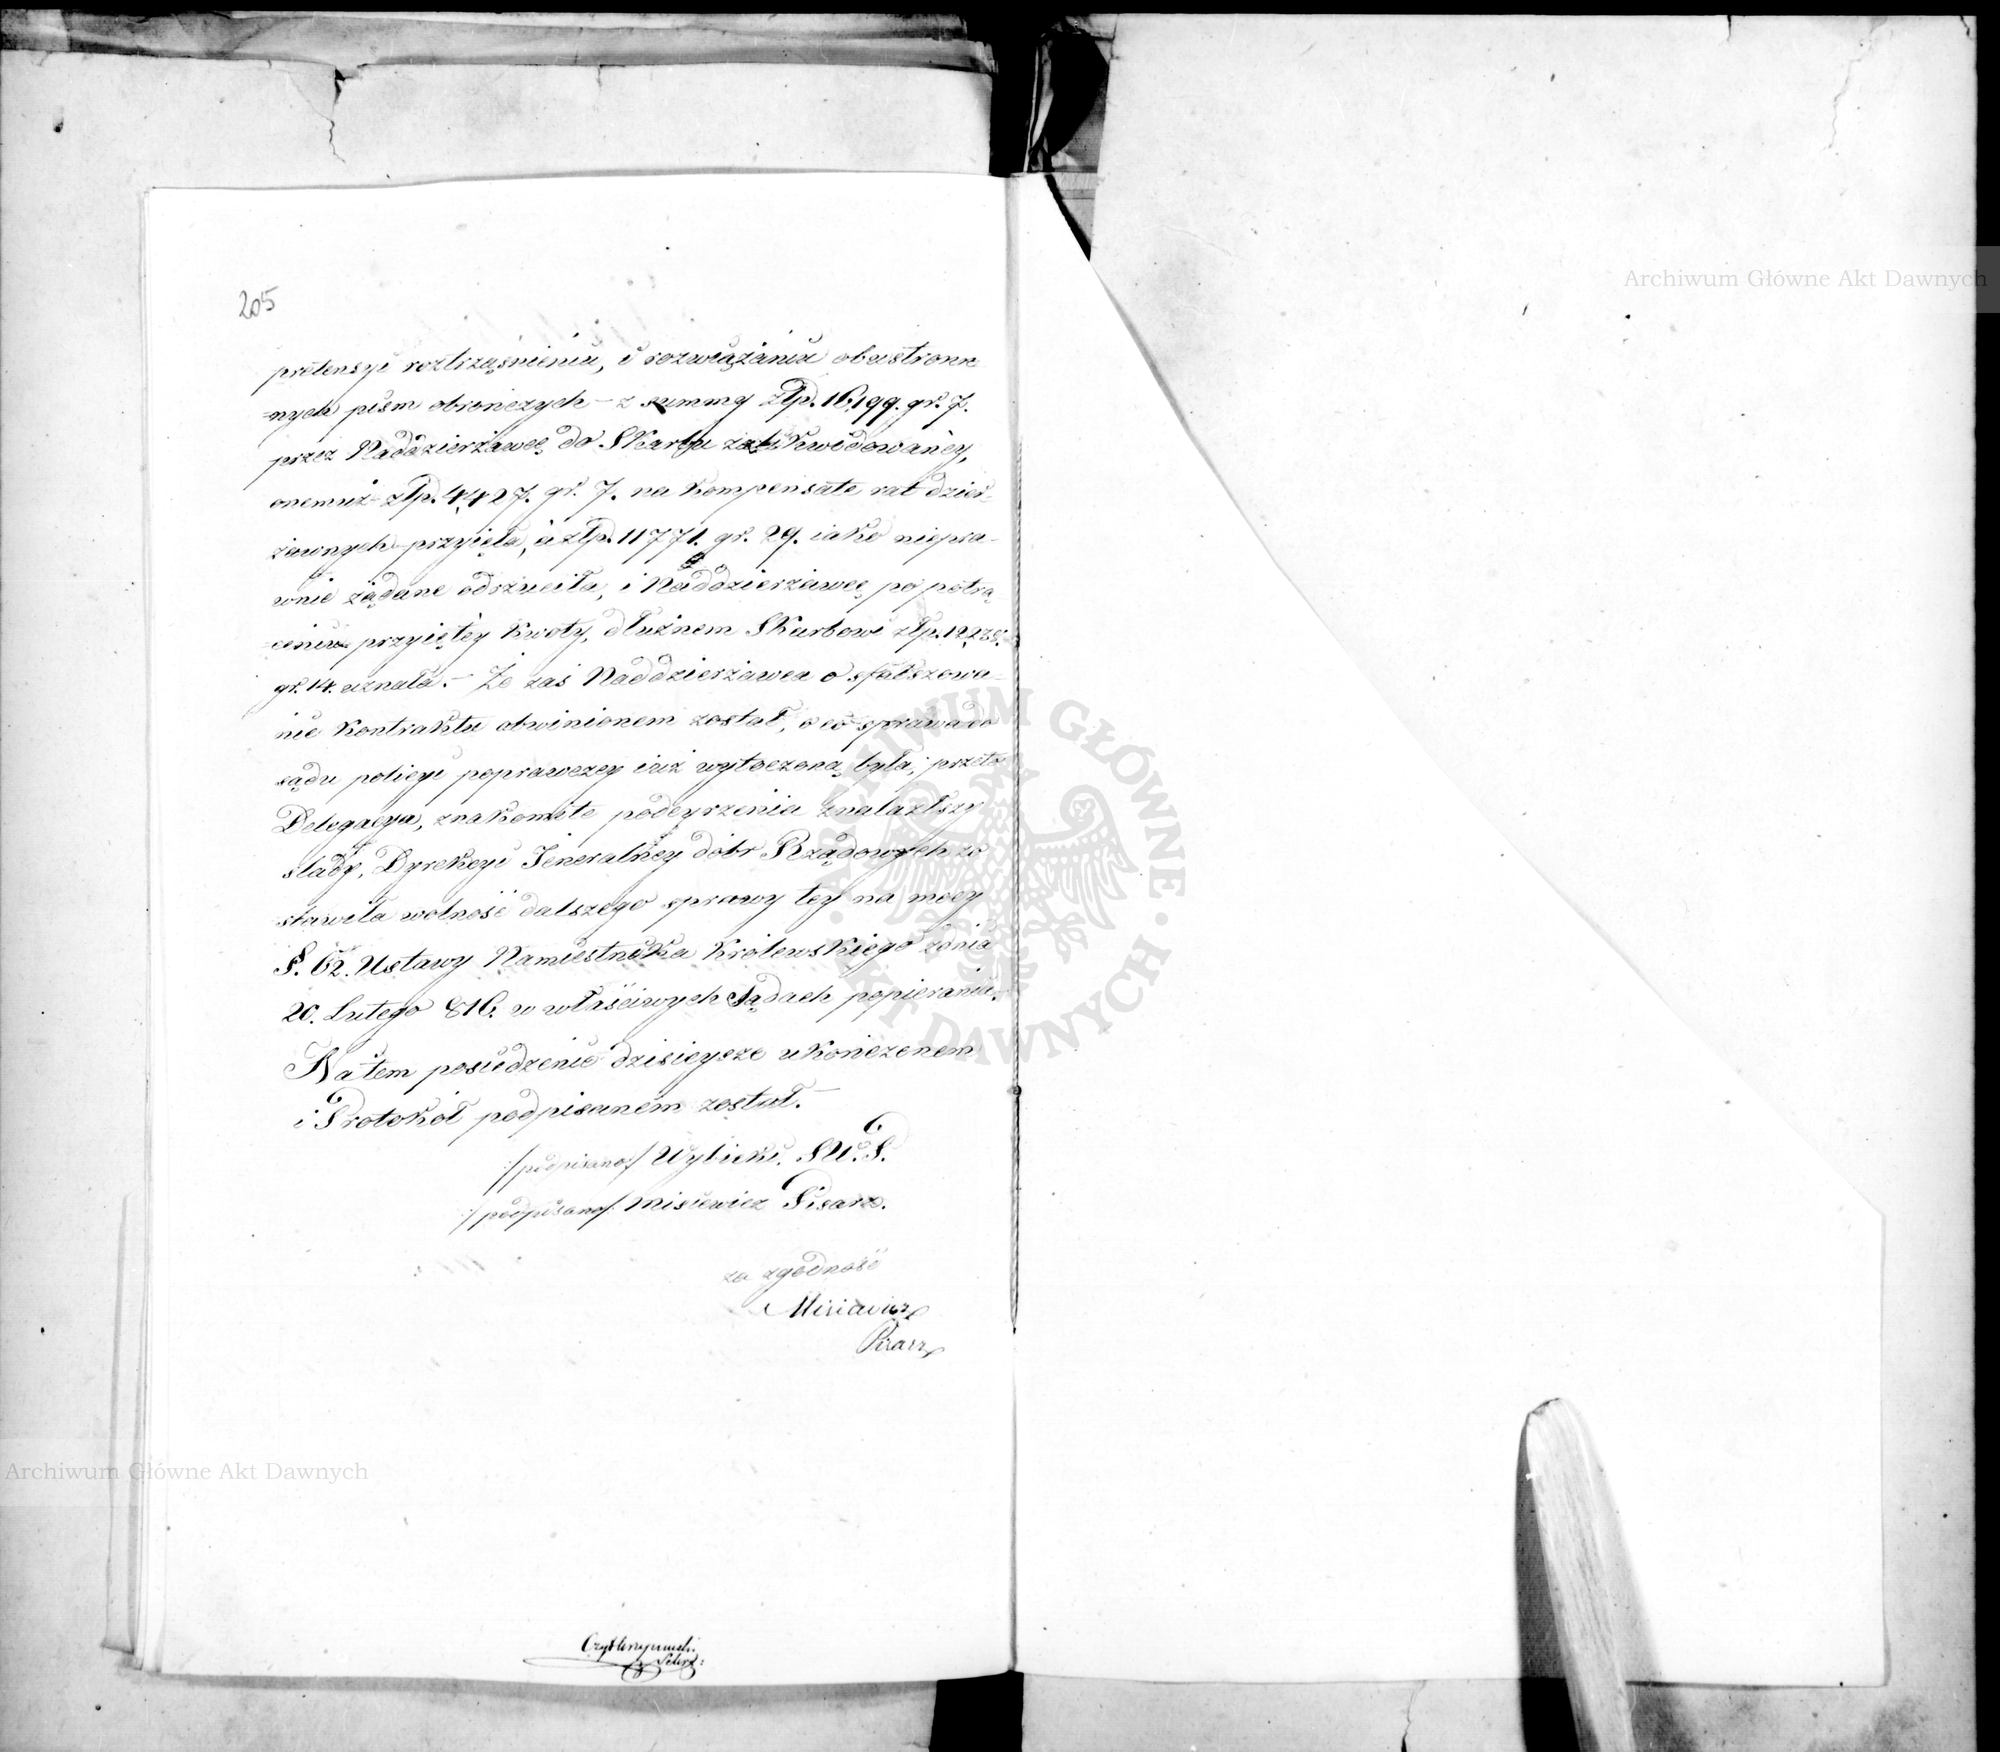 205
pretensyi roztrząśnieniu, i rozwiązaniu obustronn
=nych pism obrończych – z summy złp. 16,199. gr. 7.
przez Naddzierżawcę do Skarbu zalikwidowaney,
onemuż złp. 4,427. gr. 7. na kompensatę rat dzier-
żawnych przyięła, a złp. 11771. gr. 29. iako niepra-
wnie żądane odrzuciła, i Naddzierżawcę po potrą
=ceniu przyiętey kwoty, dłużnem Skarbowi złp. 12,238.
gr. 14. uznała. – Że zaś Naddzierżawca o sfałszowa-
nie kontraktu obwinionem został, o co sprawa do
sądu policyi poprawczey iuż wytoczoną była; przeto
Delegacya, znakomite podeyrzenia znalazłszy
ślady, Dyrekcyi Jeneralney dobr Rządowych zo
stawiła wolność dalszego sprawy tey na mocy
§. 62. Ustawy Namiestnika Królewskiego z dnia
20. Lutego 816. w właściwych Sądach popierania.
Na tem posiedzenie dzisieysze ukończenem
i Protokół podpisanem został. –
/podpisano/ Wybicki. S.W.P.
/podpisano/ Misiewicz Pisarz.
za zgodność
Misiewicz
Pisarz
Sekrz:
Archiwum Główne Akt Dawnych
Archiwum Główne Akt Dawnych
ARCHIWUM GŁÓWNE · AKT DAWNYCH ·